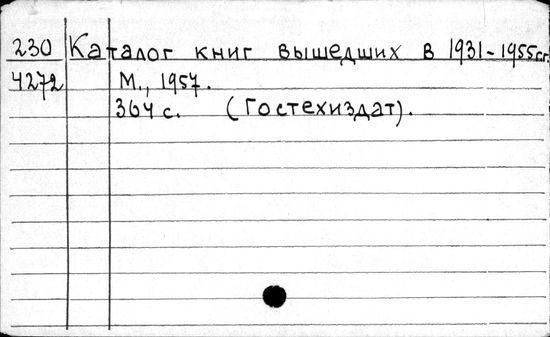 230 Каталог книг вышедших в 1931-1955гг.
4272 М., 1957.
364 с. (Гостехиздат).